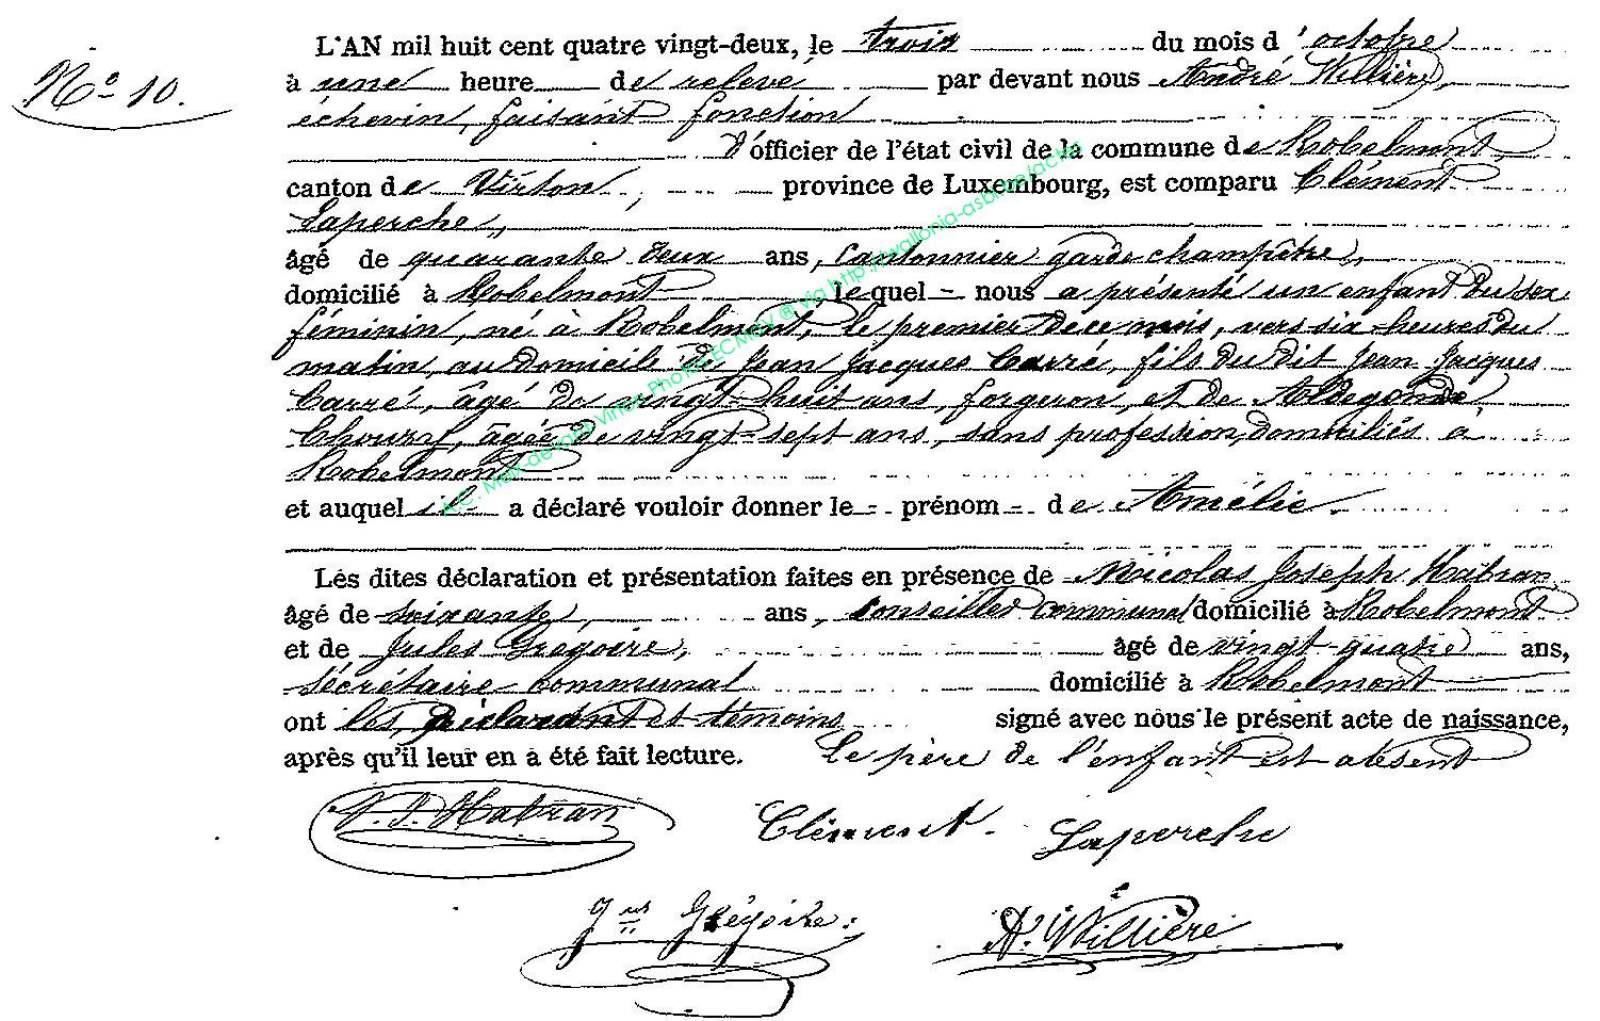 L'AN mil huit cent quatre vingt-deux, le trois du mois d'octobre
N° 10.
à une heure de relevé par devant nous André Willière,
échevin, faisant fonction
d'officier de l'état civil de la commune de Robelmont,
canton de Virton, province de Luxembourg, est comparu Clément
Laperche,
âgé de quarante deux ans, cantonnier garde champêtre,
domicilié à Robelmont, lequel nous a présenté un enfant du sex
féminin, né à Robelmont, le premier de ce mois, vers six heures du
matin, au domicile de Jean Jacques Carré, fils du dit Jean Jacques
Carré, âgé de vingt-huit ans, forgeron, et de Aldegonde
âgée de vingt-sept ans, sans profession, domiciliés à
Robelmont
et auquel il a déclaré vouloir donner le prénom de Amélie.
Les dites déclaration et présentation faites en présence de Nicolas Joseph Habran,
âgé de soixante, ans, conseiller communal domicilié à Robelmont
et de Jules Grégoire, âgé de vingt-quatre ans,
sécrétaire communal domicilié à Robelmont
ont les déclarant et témoins signé avec nous le présent acte de naissance,
après qu'il leur en a été fait lecture. Le père de l'enfant est absent
N. J. Habran Clément Laperche
Jules Grégoire A. Willière